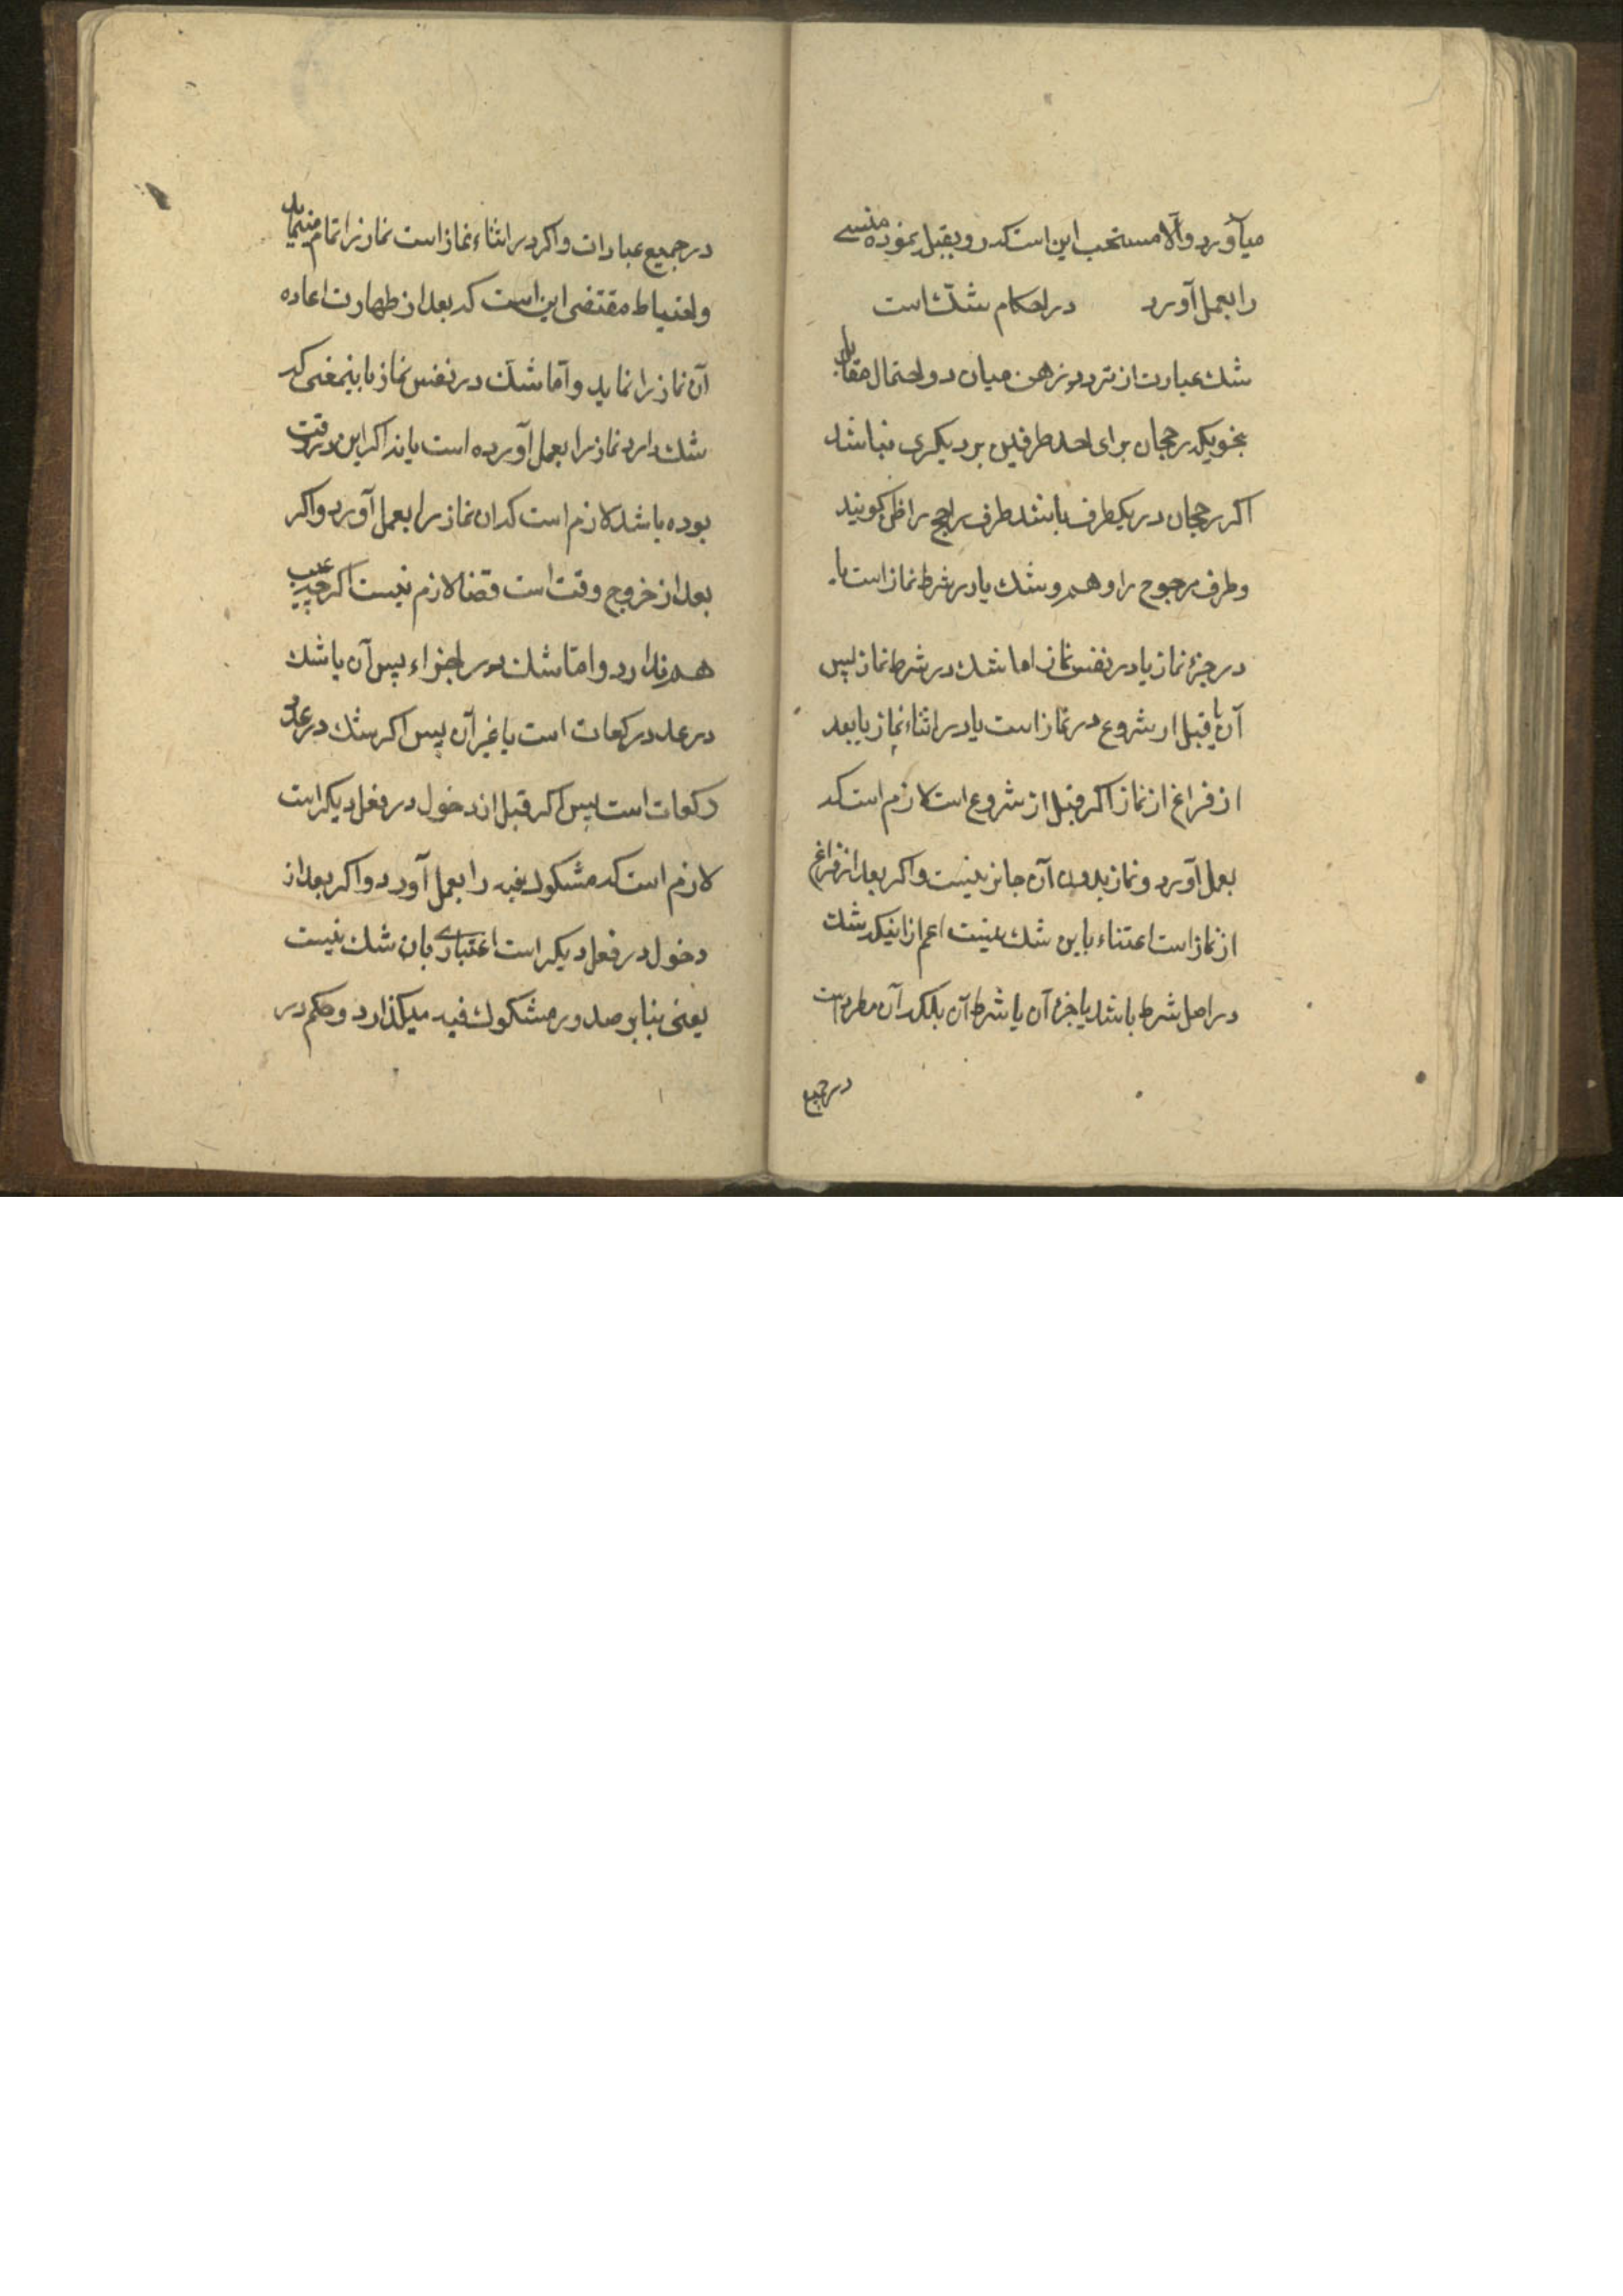 میآورد والا مستحب این است که رو بقبله نموده منسی
را بعمل آورد در احکام شک است
شک عبارت از تردد ذهن میان دو احتمال مقابل
بنحویکه رجحان برای احد طرفین بر دیگری نباشد
اکر رجحان در یکطرف باشد طرف راجح را ظن کویند
و طرف مرجوح را وهم و شک یا در شرط نماز است یا
در جزء نماز یا در نفس نماز اما شک در شرط نماز پس
آن یا قبل از شروع در نماز است یا در اثناء نماز یا بعد
از فراغ از نماز اکر قبل از شروع است لازم است که
بعمل آورد و نماز بدون آن جایز نیست و اکر بعد از فراغ
از نماز است اعتناء باین شک نیست اعم از اینکه شک
در اصل شرط باشد یا جزء آن یا شرط آن بلکه آن مطرد است
در جمیع
در جمیع عبادات و اکر در اثناء نماز است نماز را تمام مینماید
و احتیاط مقتضی این است که بعد از طهارت اعاده
آن نماز را نماید و اما شک در نفس نماز باینمعنی که
شک دارد نماز را بعمل آورده است یا نه اکر این در وقت
بوده باشد لازم است که ان نماز را بعمل آورد و اکر
بعد از خروج وقت است قضا لازم نیست اکر چه عیب
هم ندارد و اما شک در اجزاء پس آن یا شک
در عدد رکعات است یا غیر آن پس اکر شک در عدد
رکعات است پس اکر قبل از دخول در فعل دیکر است
لازم است که مشکوک فیه را بعمل آورد و اکر بعد از
دخول در فعل دیکر است اعتباری بان شک نیست
یعنی بنا بر صدور مشکوک فیه میکذارد و حکم در